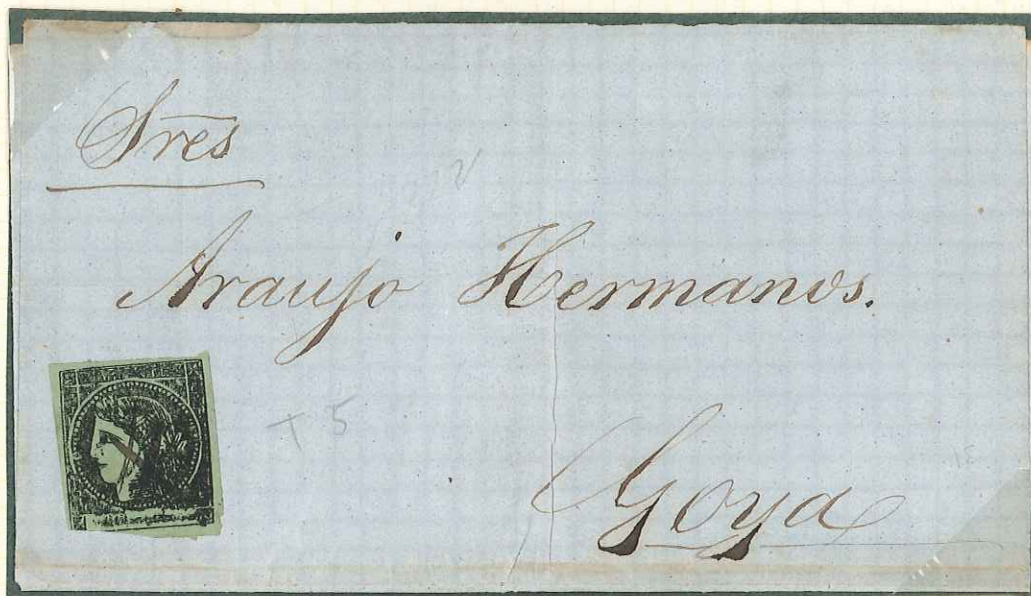 Sres
Araujo Hermanos.
T 5
Goya